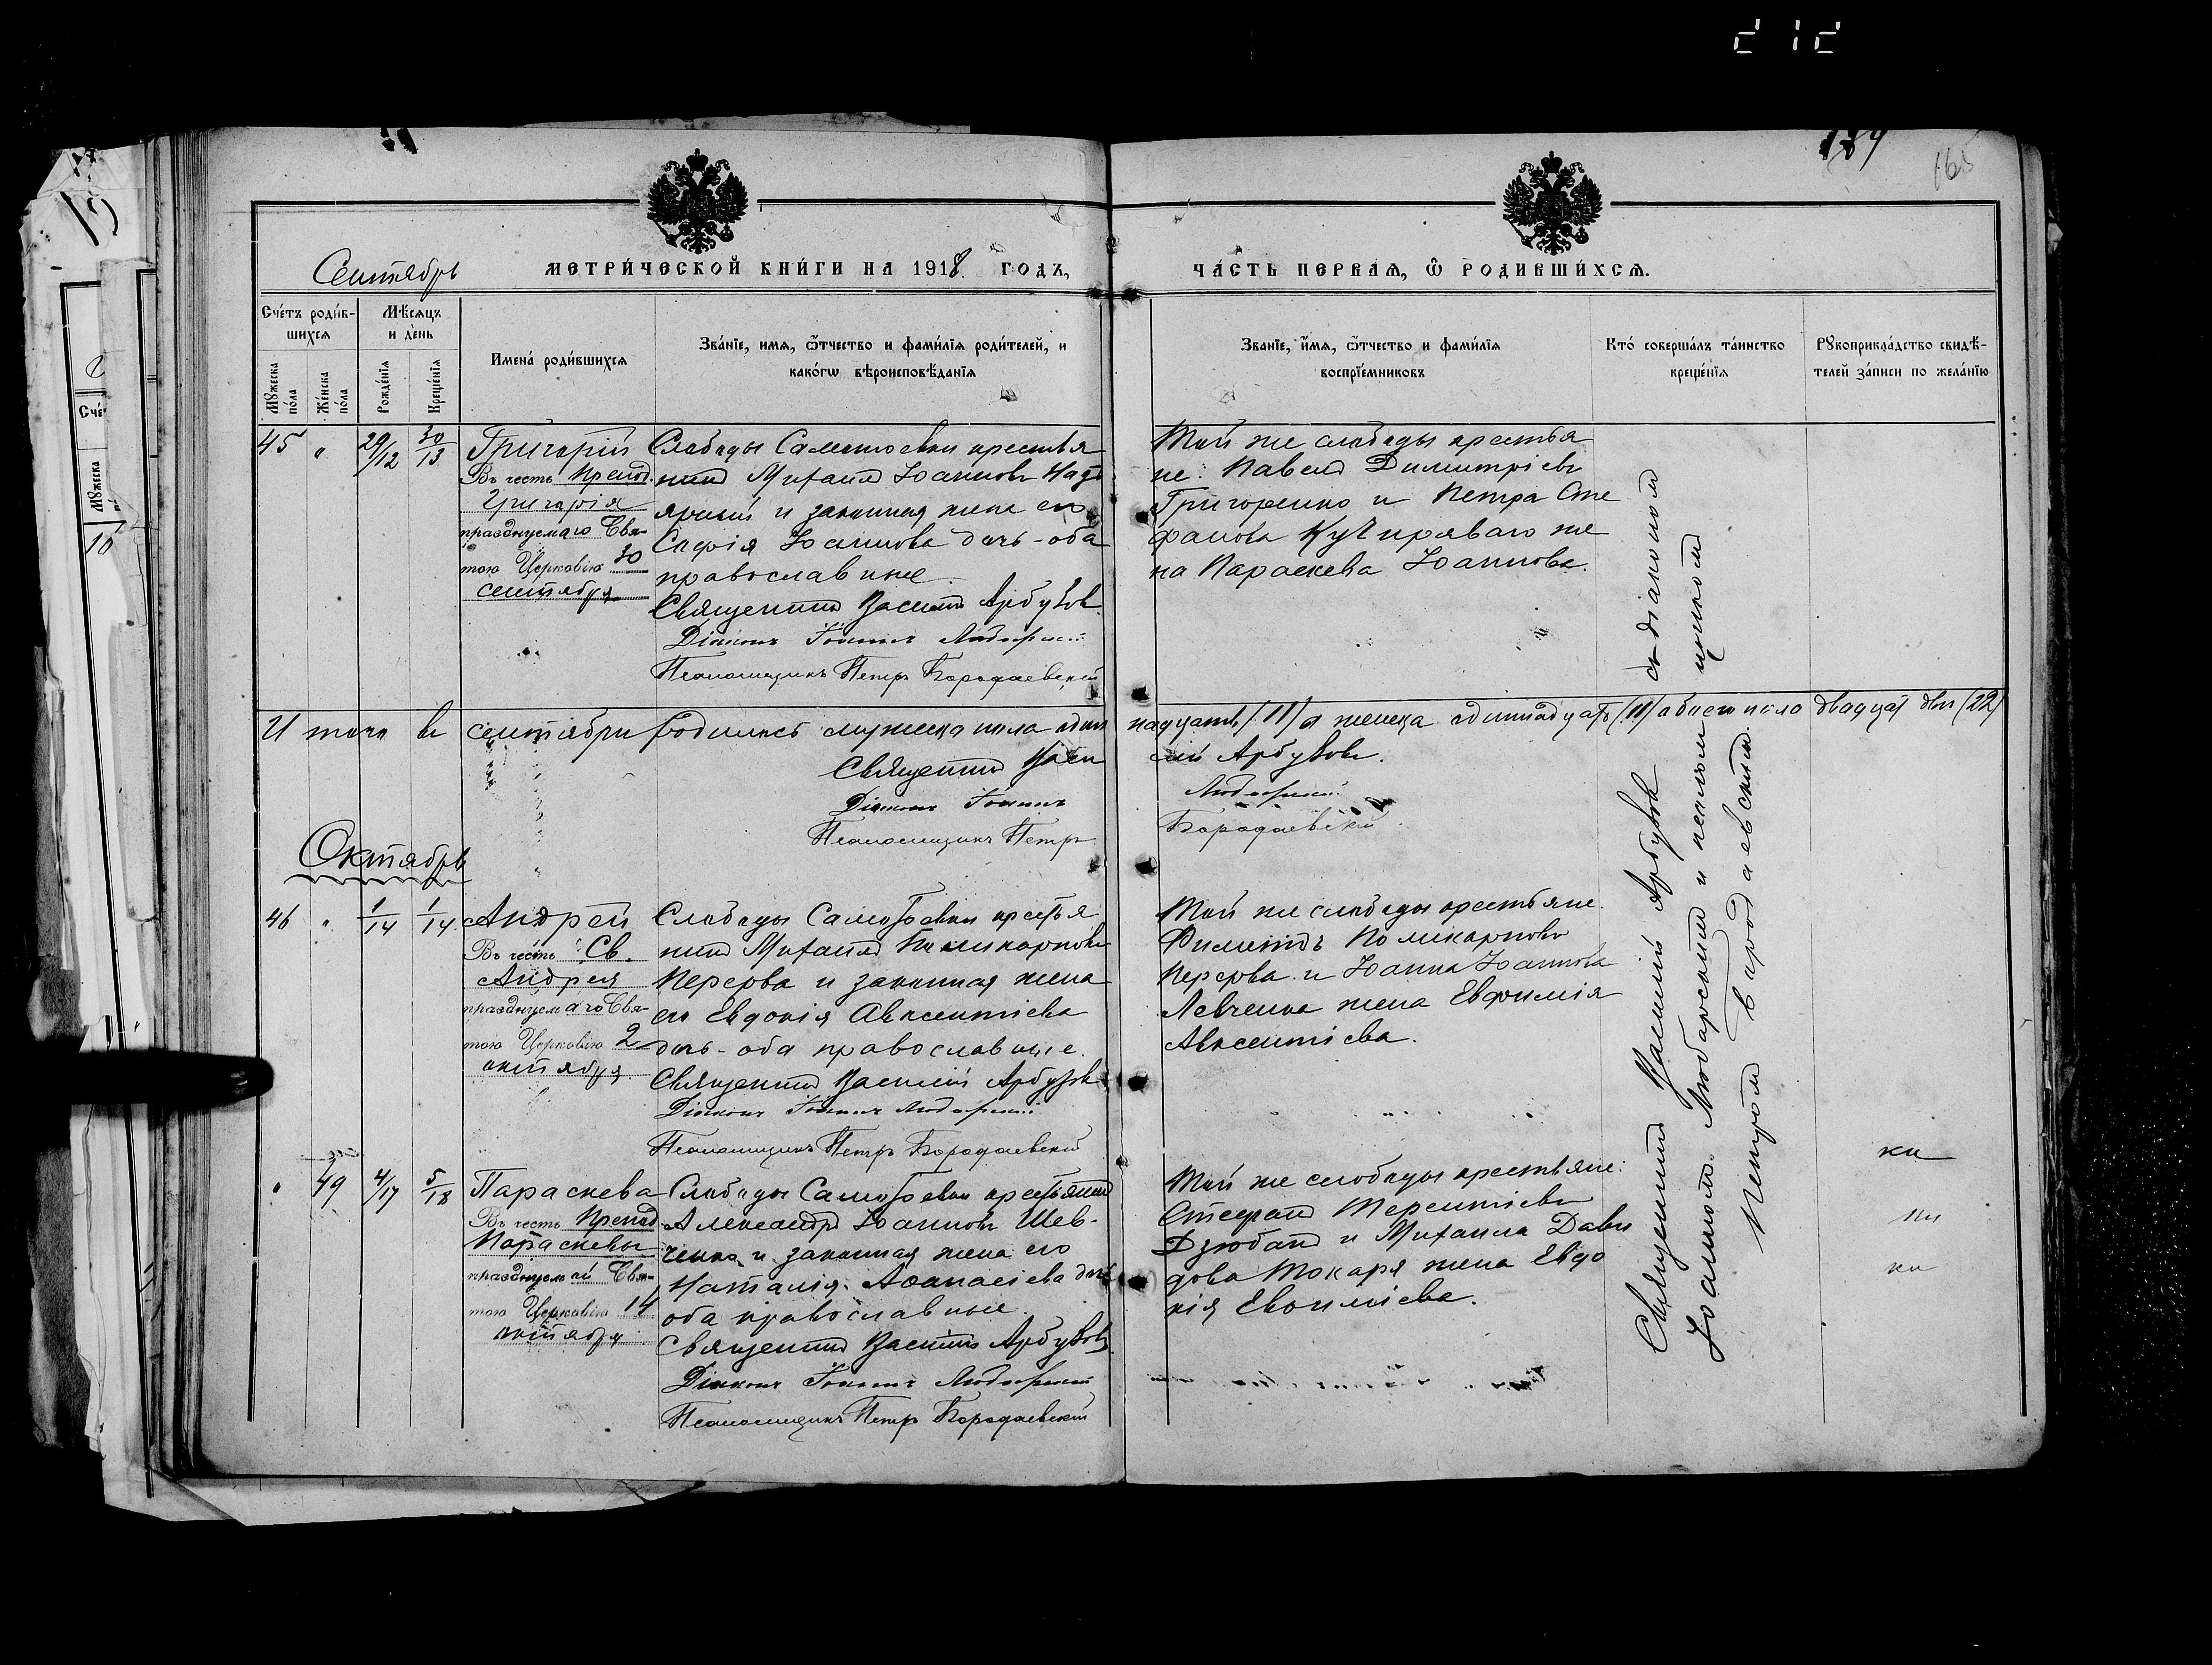 212
189
165
Сентябрь
МЕТРИ́ЧЕСКОЙ КНИ́ГИ НА 1918 ГОДЪ,
ЧА́СТЬ ПЕРВАЯ, Ѽ РОДИВШИ́ХСЯ.
Сче́тъ роди́в-
шихся
Мѣ́сяцъ
и де́нь
Мꙋ́жеска по́ла
Же́нска по́ла
Рожде́нїя
Креще́нїя
Имена́ роди́вшихся
Зва́нїе, имя, ѿтчество и фами́лїя роди́телей, и
како́гѡ вѣроисповѣ́данїя
Зва́нїе, и́мя, ѿтчество и фами́лїя
воспрїе́мниковъ
Кто́ соверша́лъ та́инство
креще́нїя
Рꙋкоприкла́дство свидѣ́-
телей за́писи по жела́нїю
45 " 29/12 30/13
Григорій
Въ честь Препод.
Григорія
празднуемаго Свя-
тою Церковію 30
сентября
Слободы крестья
нинъ Михаилъ Іоанновъ
и законная жена его
Софія Іоаннова дочь - оба
православные.
Священникъ Василій Арбузовъ
Діаконъ Іоаннъ Любарскій
Псаломщикъ Петръ Бородаевскій
Той же слободы крестья
не: Павелъ Димитріевъ
Григоренко и Петра Сте
фанова Кучеряваго же
на Параскева Іоаннова.
Итого въ сентябрѣ родилось мужеска пола один
надцать /11/ а женска одиннадцать /11/ обоего пола двадцать два (22)
Священникъ Васи
лій Арбузовъ.
Діаконъ Іоаннъ
Любарскій
Псаломщикъ Петръ
Бородаевскій
Октябрь
46 " 1/14 1/14
Андрей
Въ честь Св.
Андрея
празднуемаго Свя-
тою Церковію 2
октября
Слободы крестья
нинъ Михаилъ Поликарповъ
Перерва и законная жена
его Евдокія Авксентіева
дочь - оба православные.
Священникъ Василій Арбузовъ
Діаконъ Іоаннъ Любарскій
Псаломщикъ Петръ Бородаевскій
Той же слободы крестьяне.
Филиппъ Поликарповъ
Перерва и Іоанна Іоаннова
Левченка жена Евфимія
Авксентіева.
" 49 4/17 5/18
Параскева
Въ честь Препод
Параскевы
празднуемой Свя-
тою Церковію 14
октября
Слободы крестьянинъ
Александръ Іоанновъ Шев-
ченко и законная жена его
Наталія Аѳанасіева дочь
оба православные.
Священникъ Василій Арбузовъ
Діаконъ Іоаннъ Любарскій
Псаломщикъ Петръ Бородаевскій
Той же слободы крестьяне:
Стефанъ Терентіевъ
Дзюбанъ и Михаила Дави
дова Токаря жена Евдо
кія Евѳиміева.
Священникъ Василій Арбузовъ съ діакономъ
Іоанномъ Любарскимъ и псаломщикомъ
Петромъ Бородаевскимъ